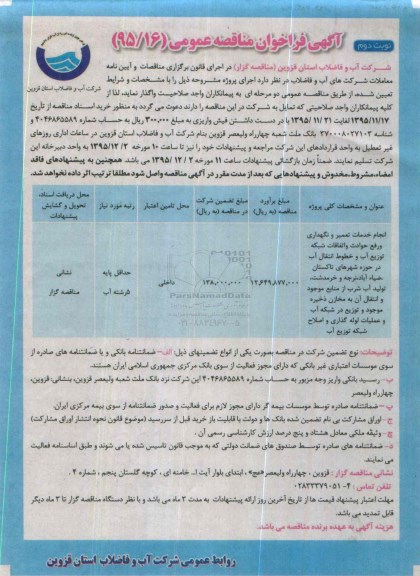 نوبت دوم
آگهی فراخوان مناقصه عمومی (۹۵/۱۶)
شرکت آب و فاضلاب استان قزوین
شرکت آب و فاضلاب استان قزوین (مناقصه گزار) در اجرای قانون برگزاری مناقصات و آیین نامه
معاملات شرکت های آب و فاضلاب در نظر دارد اجرای پروژه مشروحه ذیل را با مشخصات و شرایط
تعیین شده، از طریق مناقصه عمومی دو مرحله ای به پیمانکاران واجد صلاحیت واگذار نماید، لذا از
کلیه پیمانکاران واجد صلاحیتی که تمایل به شرکت در این مناقصه را دارند دعوت می گردد به منظور خرید اسناد مناقصه از تاریخ
۱۳۹۵/۱۱/۱۷ لغایت ۱۳۹۵/۱۱/۲۱ با در دست داشتن فیش واریزی به مبلغ ۳۰۰,۰۰۰ ریال به حساب شماره ۴۰۴۶۸۵۵۸۹ و
شناسه ۳۷۰۰۰۸۰۲۷۱۰۳ بانک ملت شعبه چهارراه ولیعصر قزوین بنام شرکت آب و فاضلاب استان قزوین در ساعات اداری روزهای
غیر تعطیل به واحد قراردادهای این شرکت مراجعه و پیشنهادات خود را نیز تا ساعت ۱۰ مورخه ۱۳۹۵/۱۲/۳ به واحد دبیرخانه این
شرکت تسلیم نمایند. ضمناً زمان بازگشائی پیشنهادات ساعت ۱۱ مورخه ۱۳۹۵/۱۲/۲ می باشد. همچنین به پیشنهادهای فاقد
امضاء،مشروط،مخدوش و پیشنهادهایی که بعد از مدت مقرر در آگهی مناقصه واصل شود مطلقا ترتیب اثر داده نخواهد شد.
عنوان و مشخصات کلی پروژه
مبلغ برآورد مناقصه (به ریال)
مبلغ تضمین شرکت در مناقصه (به ریال)
محل تامین اعتبار
رتبه مورد نیاز
محل دریافت اسناد، تحویل و گشایش پیشنهادات
انجام خدمات تعمیر و نگهداری
ورفع حوادث واتفاقات شبکه
توزیع آب و خطوط انتقال آب
در حوزه شهرهای تاکستان
،ضیاء آباد،نرجه و خرمدشت،
تولید آب شرب از منابع موجود
و انتقال آن به مخازن ذخیره
موجود و توزیع در شبکه آب
و عملیات لوله گذاری و اصلاح
شبکه توزیع آب
۱۲,۶۴۹,۸۷۷,۰۰۰
۱۳۸,۰۰۰,۰۰۰
داخلی
حداقل پایه ۵رشته آب
نشانی مناقصه گزار
توضیحات: نوع تضمین شرکت در مناقصه بصورت یکی از انواع تضمینهای ذیل: الف- ضمانتنامه بانکی و یا ضمانتنامه های صادره از
سوی موسسات اعتباری غیر بانکی که دارای مجوز فعالیت از سوی بانک مرکزی جمهوری اسلامی ایران هستند.
ب- رسید بانکی واریز وجه مزبور به حساب شماره ۴۰۴۶۸۵۵۸۹ این شرکت نزد بانک ملت شعبه ولیعصر قزوین، بنشانی: قزوین،
چهارراه ولیعصر
پ- ضمانتنامه صادره توسط موسسات بیمه گر دارای مجوز لازم برای فعالیت و صدور ضمانتنامه از سوی بیمه مرکزی ایران
ج- اوراق مشارکت بی نام تضمین شده بانک ها و دولت با قابلیت باز خرید قبل از سررسید (موضوع قانون نحوه انتشار اوراق مشارکت)
چ- وثیقه ملکی معادل هشتاد و پنج درصد ارزش کارشناسی رسمی آن .
د- ضمانتنامه های صادره توسط صندوق های ضمانت دولتی که به موجب قانون تاسیس شده یا می شوند و طبق اساسنامه فعالیت
می نمایند
نشانی مناقصه گزار : قزوین ، چهارراه ولیعصر«عج» ، ابتدای بلوار آیت ا.. خامنه ای ، کوچه گلستان پنجم ، شماره ۴ .
تلفن تماس : ۴ - ۰۲۸۳۳۳۷۹۰۵۱
مهلت اعتبار پیشنهاد قیمت ها از تاریخ آخرین روز ارائه پیشنهادات به مدت ۳ ماه می باشد و با نظر دستگاه مناقصه گزار تا ۳ ماه دیگر
قابل تمدید می باشد.
هزینه آگهی به عهده برنده مناقصه می باشد.
روابط عمومی شرکت آب و فاضلاب استان قزوین